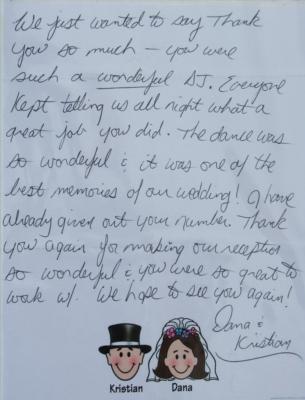 We just wanted to say Thank
you so much - you were
such a wonderful DJ. Everyone
kept telling us all night what a
great job you did. The dance was
so wonderful & it was one of the
best memories of our wedding! I have
already given out your number. Thank
you again for making our reception
so wonderful & you were so great to
work w/. We hope to see you again!
Dana &
Kristian
Kristian Dana